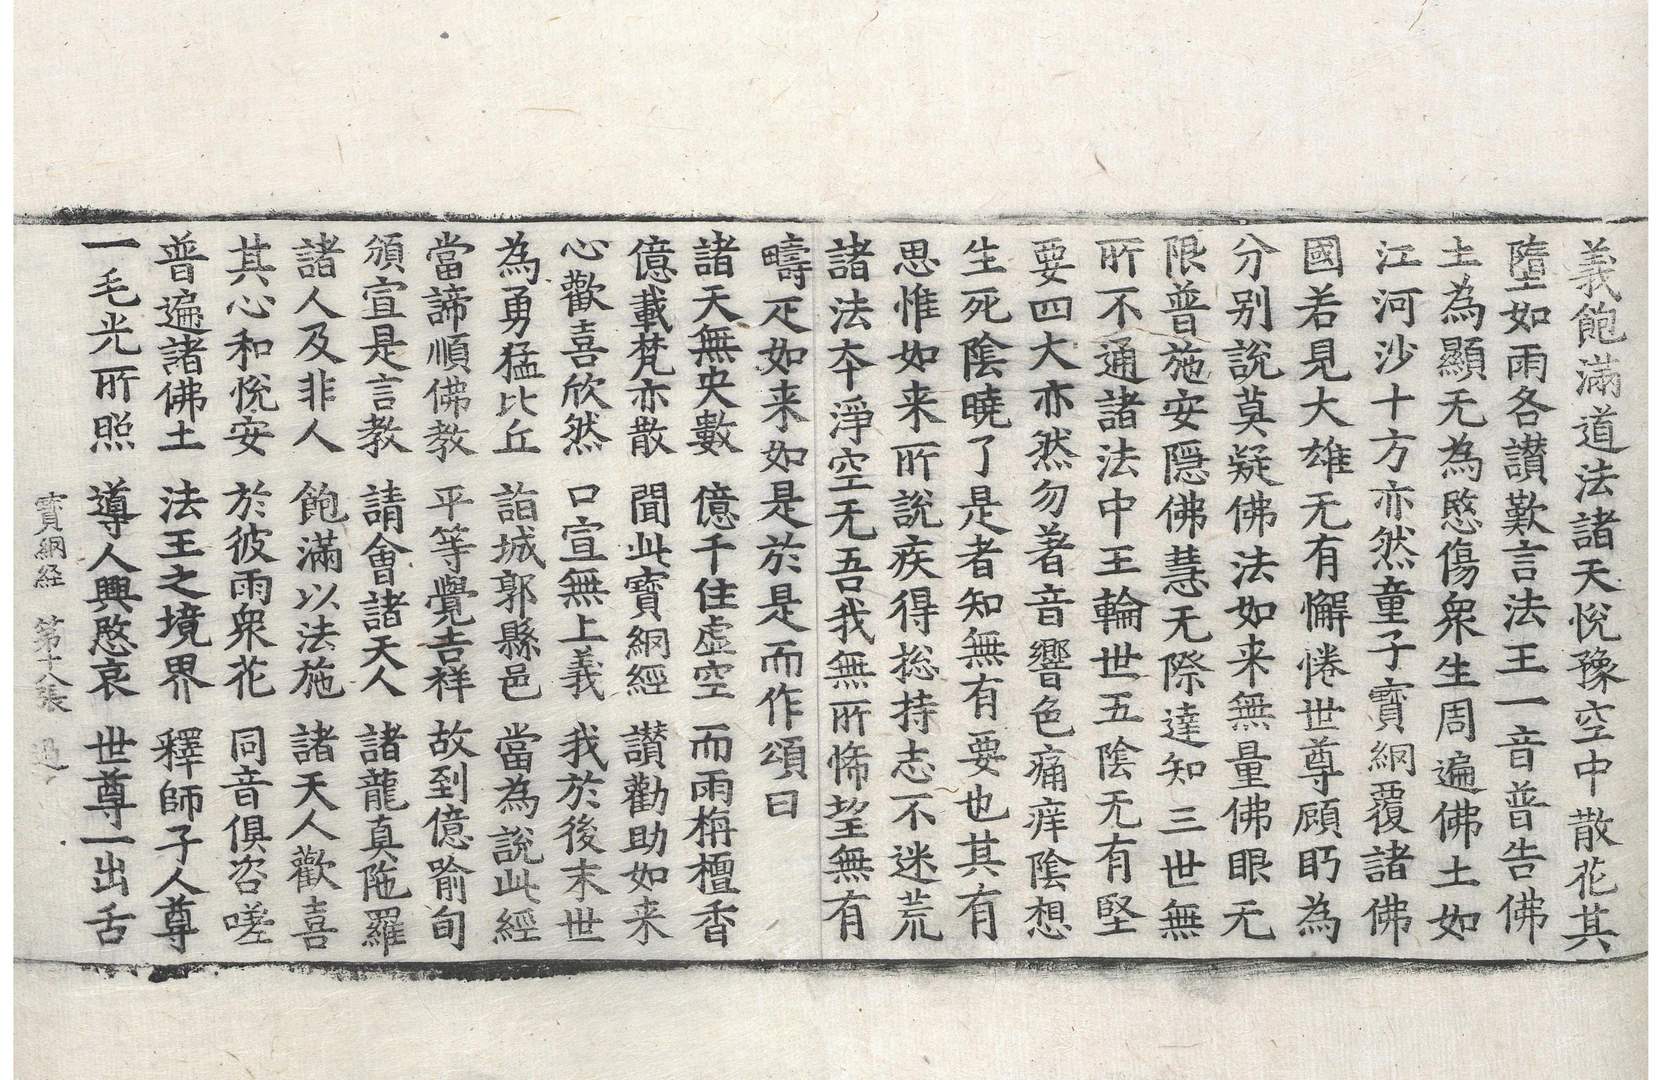 義飽滿道法諸天悅豫空中散花其
墮如雨各讃歎言法王一音普告佛
土為顯无為愍傷衆生周遍佛土如
江河沙十方亦然童子寶網覆諸佛
國若見大雄无有懈惓世尊顧眄為
分别說莫疑佛法如来無量佛眼无
限普施安隱佛慧无際達知三世無
所不通諸法中王輪世五陰无有堅
要四大亦然勿著音響色痛痒陰想
生死陰曉了是者知無有要也其有
思惟如来所說疾得捴持志不迷荒
諸法夲淨空无吾我無所悕望無有
疇疋如来如是於是而作頌曰
諸天無央數 億千住虛空 而雨栴檀香
億載梵亦散 聞此寶網經 讃勸助如来
心歡喜欣然 口宣無上義 我於後末世
為勇猛比丘 詣城郭縣邑 當為說此經
當諦順佛教 平等覺吉祥 故到億踰旬
頒宣是言教 請會諸天人 諸龍真陁羅
諸人及非人 飽滿以法施 諸天人歡喜
其心和悅安 於彼雨衆花 同音俱咨嗟
普遍諸佛土 法王之境界 釋師子人尊
一毛光所照 導人興愍哀 世尊一出舌
寶網経 第十八張